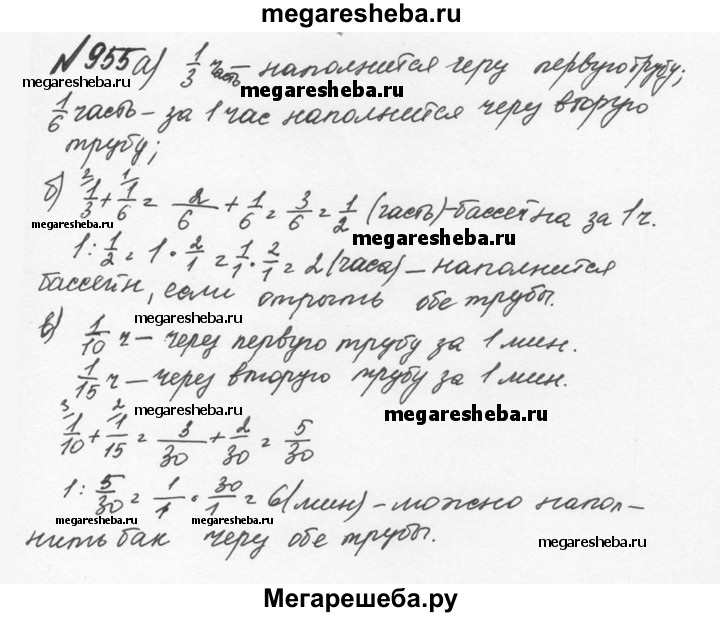 megaresheba.ru
№955 а) 1/3 часть – наполнится через первую трубу;
megaresheba.ru
megaresheba.ru
1/6 часть – за 1 час наполнится через вторую
трубу;
megaresheba.ru
megaresheba.ru
б) 1/3 + 1/6 = 2/6 + 1/6 = 3/6 = 1/2 (часть) – бассейна за 1 ч.
1 : 1/2 = 1 · 2/1 = 1/1 · 2/1 = 2 (часа) – наполнится
бассейн, если открыть обе трубы.
megaresheba.ru
megaresheba.ru
в) 1/10 ч – через первую трубу за 1 мин.
1/15 ч – через вторую трубу за 1 мин.
megaresheba.ru
megaresheba.ru
1/10 + 1/15 = 3/30 + 2/30 = 5/30
1 : 5/30 = 1/1 · 30/1 = 6 (мин) – можно напол-
megaresheba.ru
megaresheba.ru
нить бак через обе трубы.
megaresheba.ru
Мегарешеба.ру